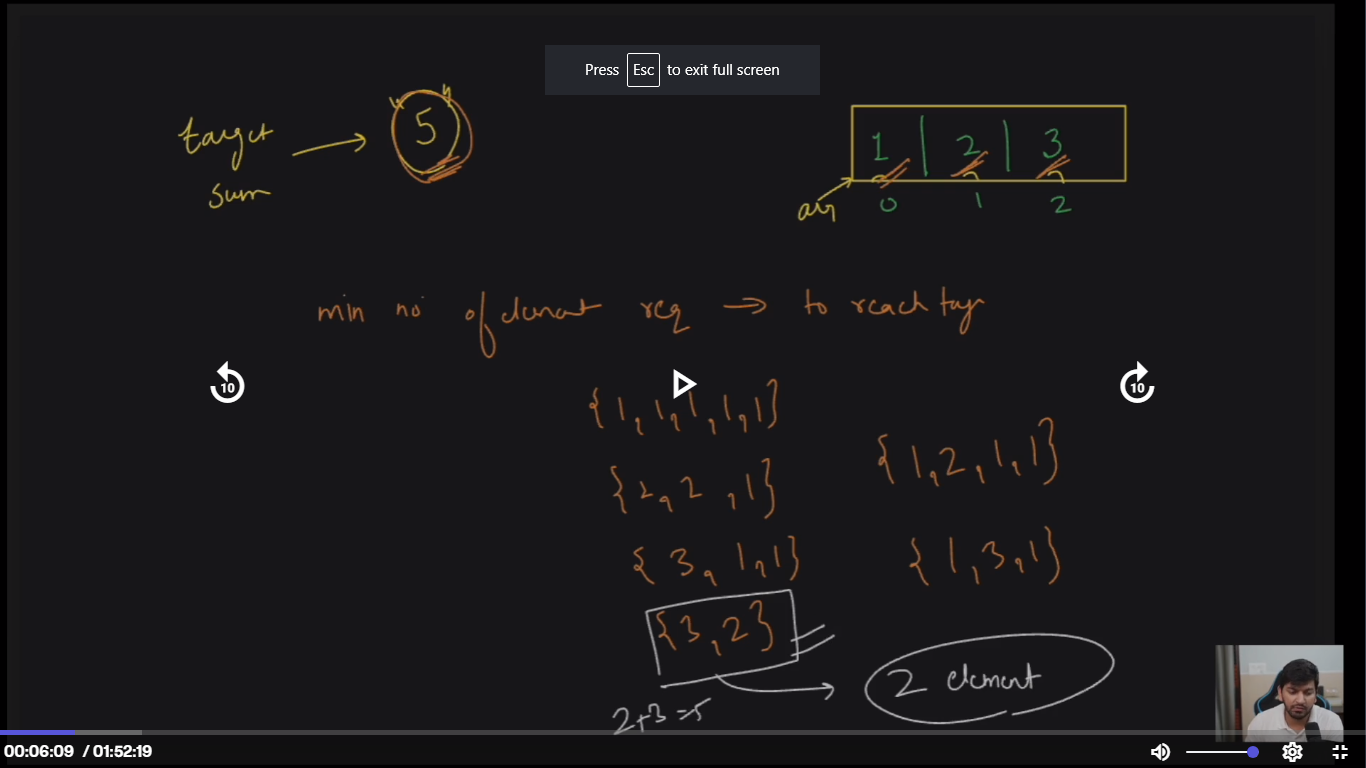 Press Esc to exit full screen
target → 5
sum
1 | 2 | 3
arr 0 1 2
min no. of element req → to reach targ
{1, 1, 1, 1, 1}
{1, 2, 1, 1}
{2, 2, 1}
{3, 1, 1}
{1, 3, 1}
{3, 2}
2 element
2+3=5
10
10
00:06:09 / 01:52:19